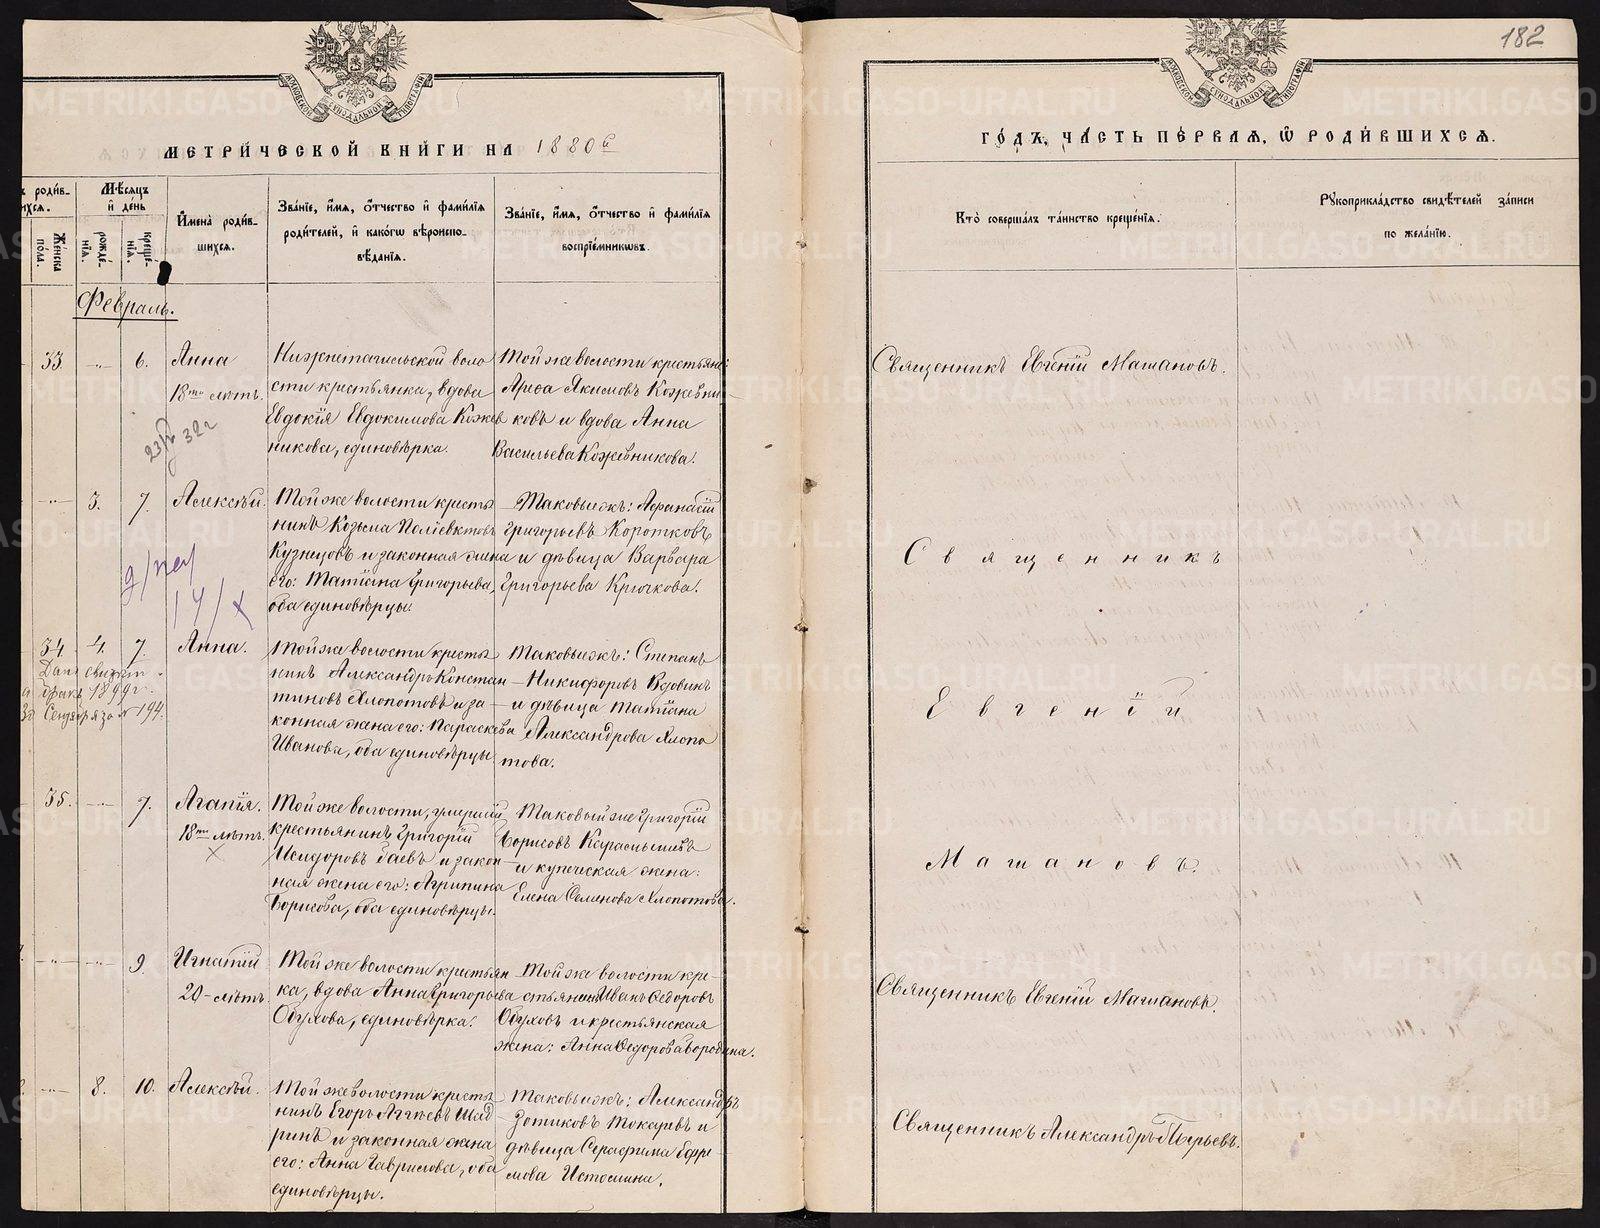 182
МЕТРИ́ЧЕСКОЙ КНИ́ГИ НА 1880й
ГО́ДЪ, ЧА́СТЬ ПЕ́РВАЯ, Ѡ РОДИ́ВШИХСЯ.
ъ роди́в-
ихся.
Же́нска
по́ла.
Мѣ́сяцъ
и́ де́нь
рожде́-
нїя.
креще́-
нїя.
И҆мена̀ роди́в-
шихся.
Зва́нїе, и҆́мя, ѻ҆́тчество и҆ фами́лїя
роди́телей, и҆ како́гѡ вѣроиспо-
вѣ́данїя.
Зва́нїе, и҆́мя, ѻ҆́тчество и҆ фами́лїя
воспрїе́мникѡвъ.
Кто̀ соверша́лъ та́инство креще́нїя.
Рꙋкоприкла́дство свидѣ́телей за́писи
по жела́нїю.
Февраль.
33 -"- 6. Анна
18ти лѣтъ.
Нижнетагильской воло
сти крестьянка, вдова
Евдокія Евдокимова Кожев
никова, единовѣрка.
Той же волости крестьяне:
Арефа Якимовъ Кожевни-
ковъ и вдова Анна
Васильева Кожевникова.
Священникъ Евгеній Машановъ.
-"- 3. 7. Алексѣй.
Той же волости кресть
нинъ Козьма Поліевктовъ
Кузнецовъ и законная жена
его: Татіана Григорьева,
оба единовѣрцы.
Таковыежъ: Афанасій
Григорьевъ Коротковъ
и дѣвица Варвара
Григорьева Крючкова.
Священникъ
34. 4. 7. Анна.
Той же волости кресть
нинъ Александръ Констан
тиновъ Хлопотовъ и за
конная жена его: Параскева
Иванова, оба единовѣрцы.
Таковыежъ: Степанъ
Никифоровъ Вдовинъ
и дѣвица Татіана
Александрова Хлопо
това.
Евгеній
35. -"- 7. Агапія.
18ти лѣтъ.
Той же волости, умершій
крестьянинъ Григорій
Исидоровъ Баевъ и закон
ная жена его: Агрипина
Борисова, оба единовѣрцы.
Таковый же Григорій
Борисовъ Карамышевъ
и купеческая жена:
Елена Семенова Хлопотова.
Машановъ.
-"- -"- 9. Игнатій
20-лѣтъ
Той же волости крестьян
ка, вдова Анна Григорьева
Обухова, единовѣрка.
Той же волости кре-
стьянинъ Иванъ Ѳедоровъ
Обуховъ и крестьянская
жена: Анна Ѳедорова Бородина.
Священникъ Евгеній Машановъ.
-"- 8. 10. Алексѣй.
Той же волости кресть
нинъ Егоръ Аггѣевъ Шад
ринъ и законная жена
его: Анна Гаврилова, оба
единовѣрцы.
Таковыежъ: Александръ
Зотиковъ Токаревъ и
дѣвица Серафима Ефре-
мова Истомина.
Священникъ Александръ Пырьевъ.